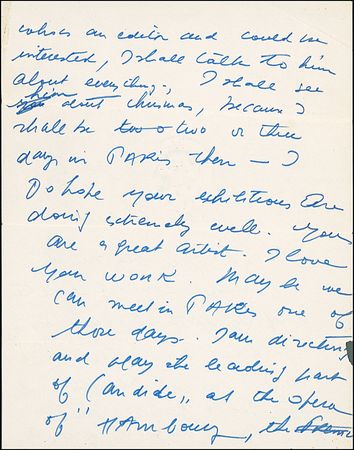 whos an editor and could be
interested, I shall talk to him
about everything, I shall see
him about chrismas, because I
shall be two o two or three
days in PARis then — I
Do hope your exhibitions are
doing extremely well. You
are a great artist. I love
your work. May be we
can meet in PARis one of
those days. I am directing
and play the leading part
of "Candide" at the opera
of "HAmbourg, the